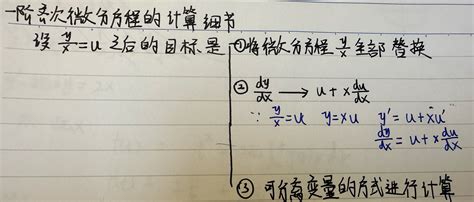 一阶齐次微分方程的计算细节
设 y/x = u 之后的目标是 ①将微分方程 y/x 全部替换
② dy/dx → u + x du/dx
∵ y/x = u  y = xu  y' = u + xu'
dy/dx = u + x du/dx
③ 可分离变量的方式进行计算